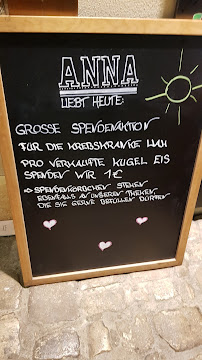 ANNA
LIEBT HEUTE:
GROSSE SPENDENAKTION
FÜR DIE KREBSKRANKE
PRO VERKAUFTE KUGEL EIS
SPENDEN WIR 1€
→ SPENDENKÖRBCHEN STEHEN
EBENFALLS AN UNSEREN THEKEN
DIE SIE GERNE BEFÜLLEN DÜRFEN